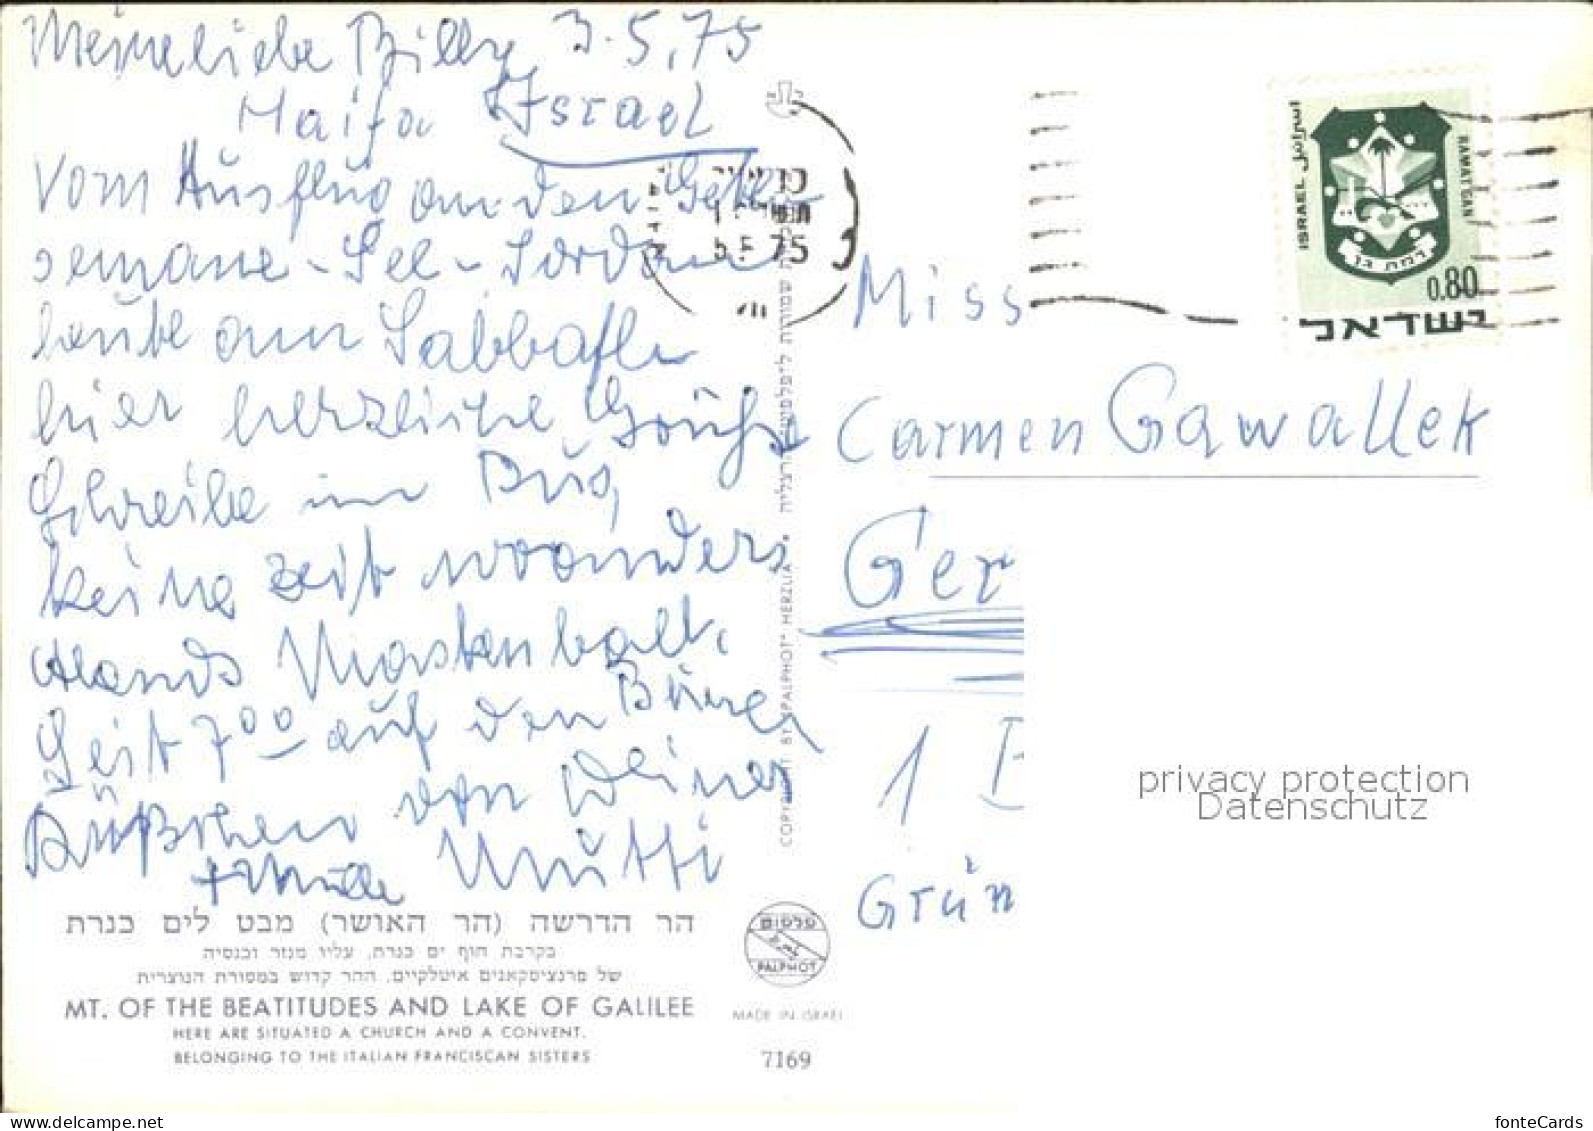 Meine liebe Billy 3.5.75
Haifa Israel
vom Ausflug an den Geth-
semane-See-Jordan
heute am Sabbath
hier herzliche Grüße
Schreibe im Bus,
keine Zeit woanders
Abends Maskenball.
Seit 7⁰⁰ auf den Beinen
Küßchen von Deiner
Mutti
הר הדרשה (הר האושר) מבט לים כנרת
בקרבת חוף ים כנרת, עליו מנזר וכנסיה
של פרנציסקאנים איטלקיים. ההר קדוש במסורת הנוצרית
MT. OF THE BEATITUDES AND LAKE OF GALILEE
HERE ARE SITUATED A CHURCH AND A CONVENT.
BELONGING TO THE ITALIAN FRANCISCAN SISTERS
COPYRIGHT BY "PALPHOT" HERZLIA
פלפוט
PALPHOT
MADE IN ISRAEL
7169
75
اسرائيل
ISRAEL
RAMAT GAN
רמת גן
0.80
ישראל
Miss
Carmen Gawallek
Ger
1 B
Grün
privacy protection
Datenschutz
fonteCards